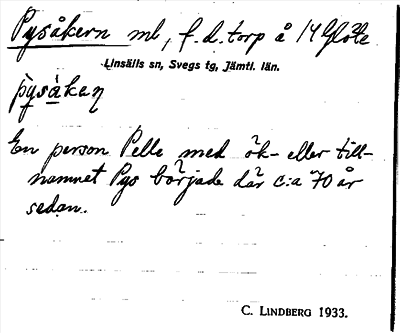 Pysåkern ml, f.d. torp å 14 Glöte
Linsälls sn, Svegs tg, Jämtl. län.
pysåkeṇ
En person Pelle med ök- eller till-
namnet Pys började där c:a 70 år
sedan.
C. LINDBERG 1933.